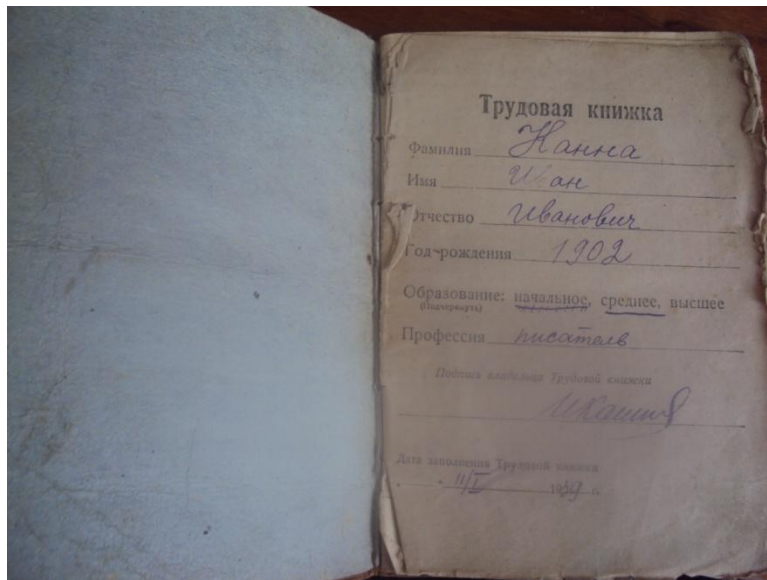 Трудовая книжка
Фамилия Канна
Имя Иван
Отчество Иванович
Год рождения 1902
Образование: начальное, среднее, высшее
(Подчеркнуть)
Профессия писатель
Подпись владельца Трудовой книжки
Дата заполнения Трудовой книжки
11/I 1939 г.